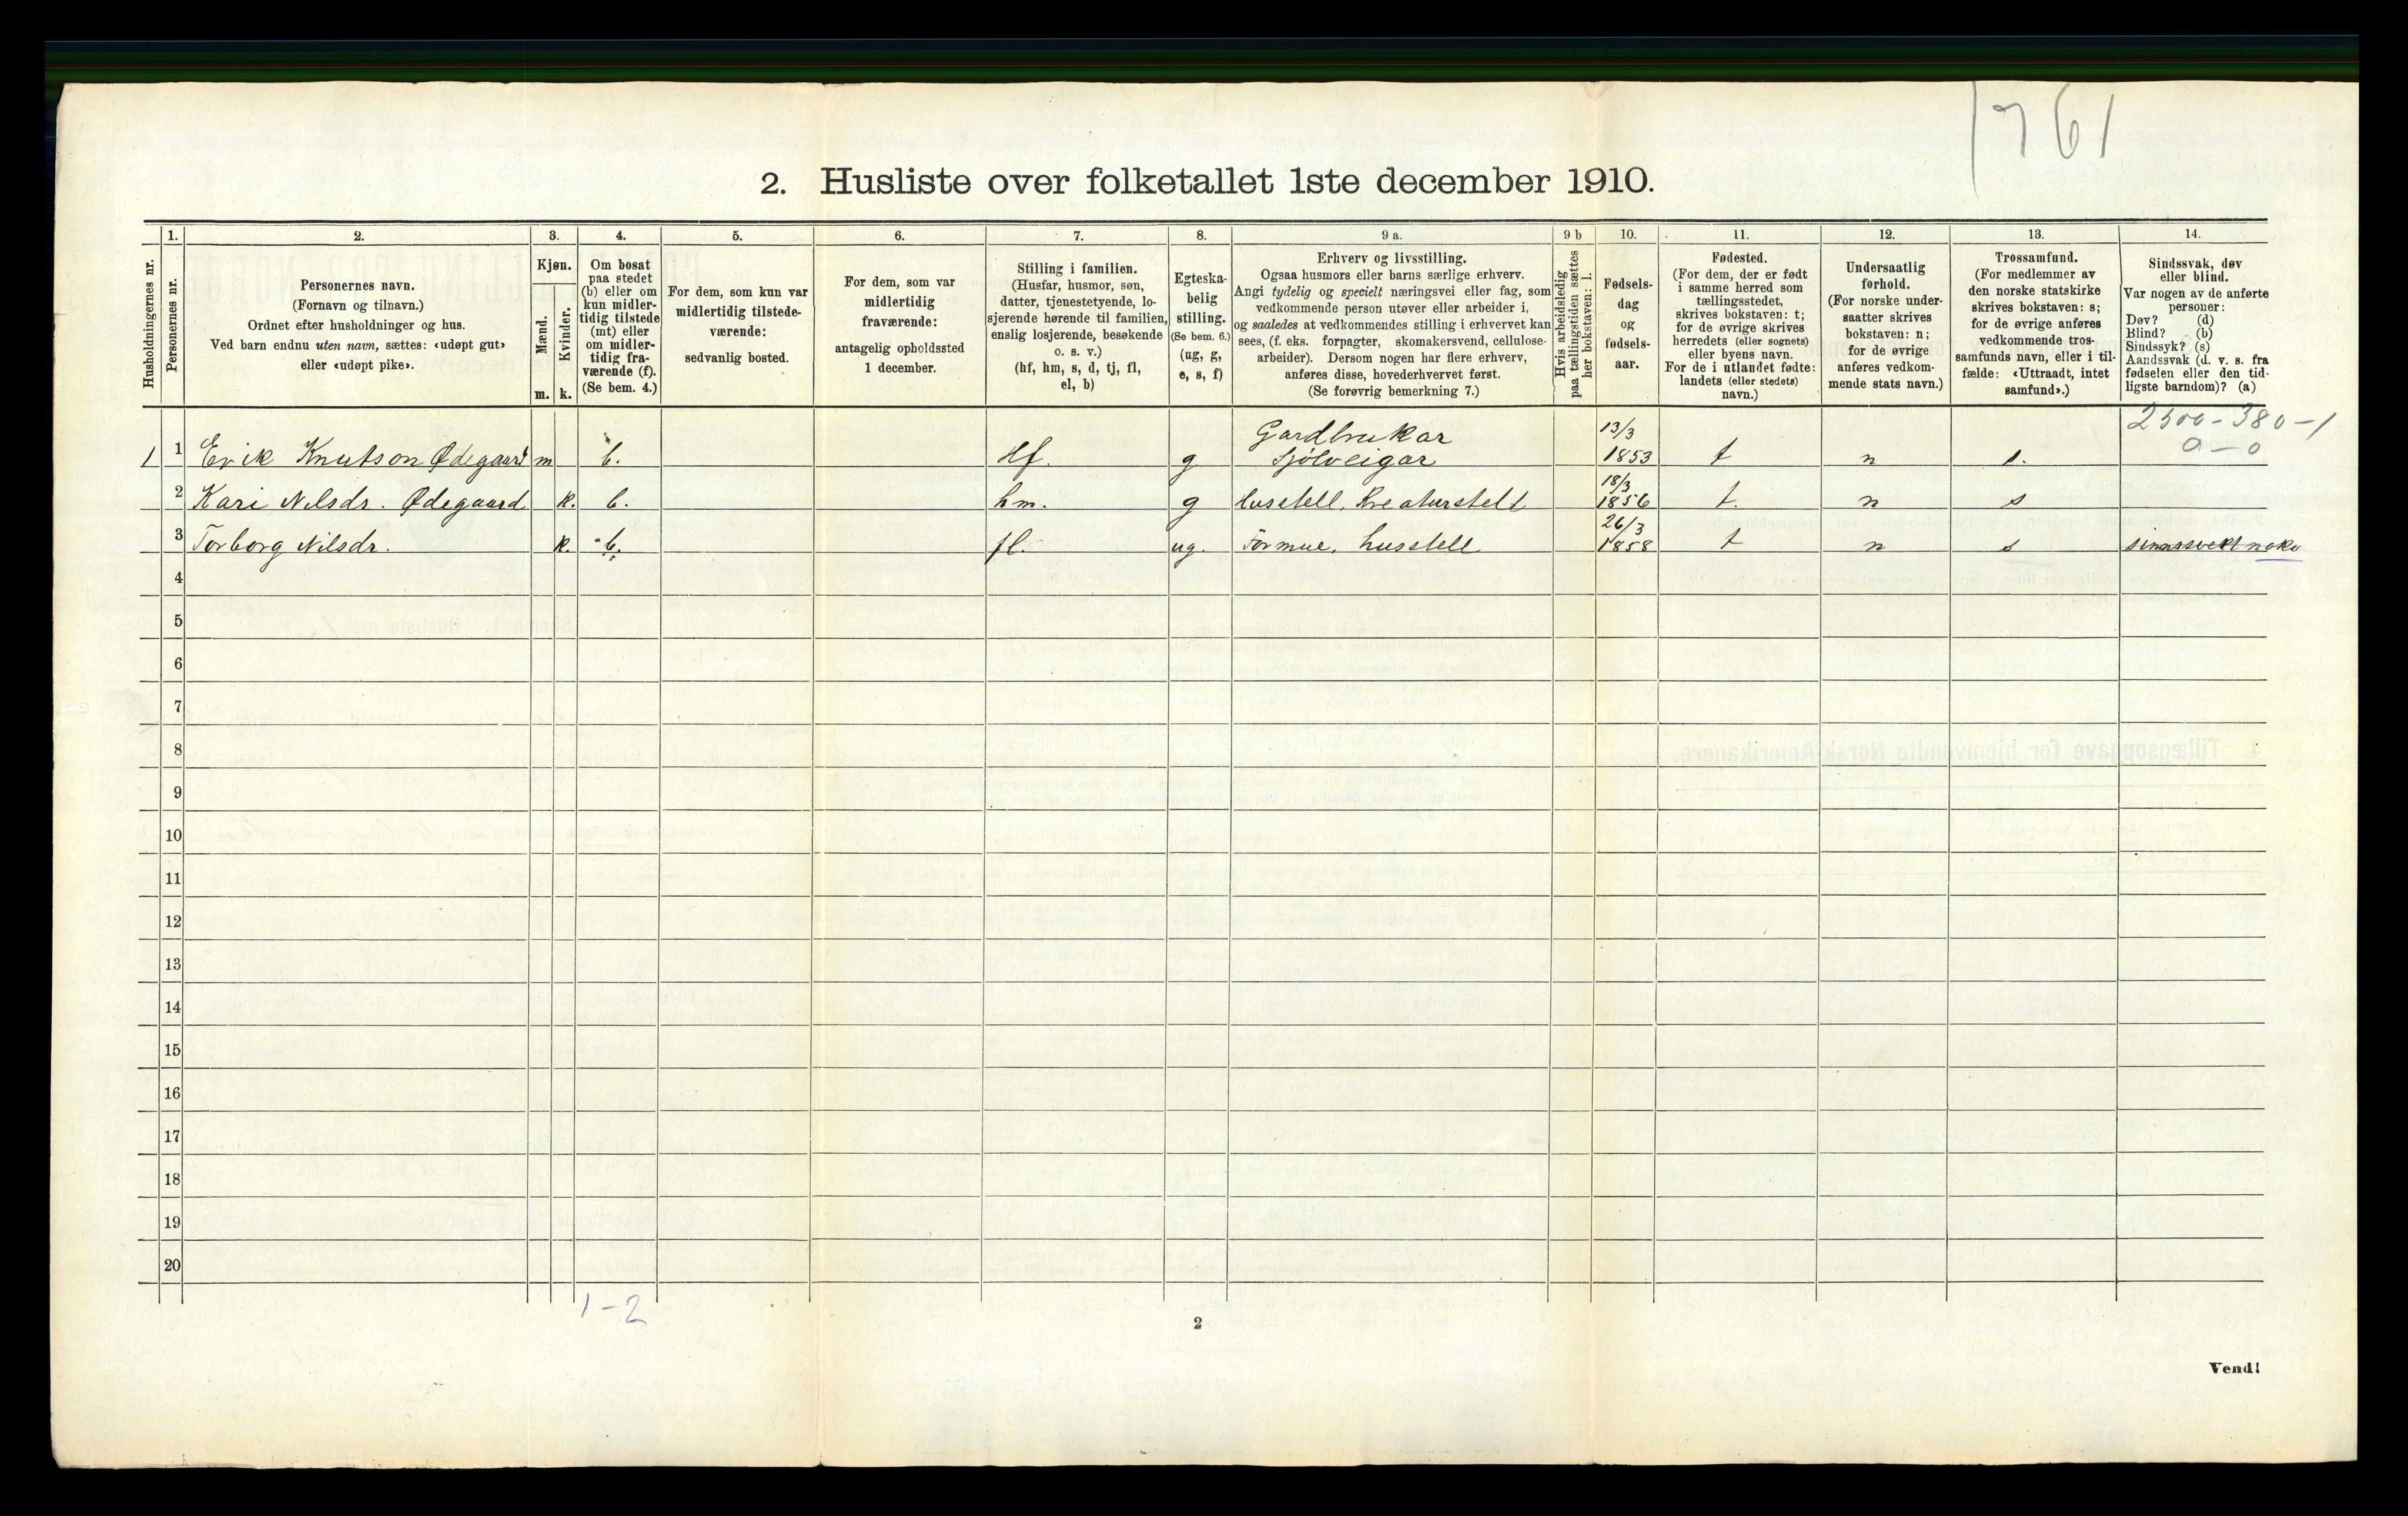 1761
2. Husliste over folketallet 1ste december 1910.
1. 2. 3. 4. 5. 6. 7. 8. 9 a. 9 b 10. 11. 12. 13. 14.
Husholdningernes nr.
Personernes nr.
Personernes navn.
(Fornavn og tilnavn.)
Ordnet efter husholdninger og hus.
Ved barn endnu uten navn, sættes: «udøpt gut»
eller «udøpt pike».
Kjøn.
Mænd.
Kvinder.
m. k.
Om bosat
paa stedet
(b) eller om
kun midler-
tidig tilstede
(mt) eller
om midler-
tidig fra-
værende (f).
(Se bem. 4.)
For dem, som kun var
midlertidig tilstede-
værende:
sedvanlig bosted.
For dem, som var
midlertidig
fraværende:
antagelig opholdssted
1 december.
Stilling i familien.
(Husfar, husmor, søn,
datter, tjenestetyende, lo-
sjerende hørende til familien,
enslig losjerende, besøkende
o. s. v.)
(hf, hm, s, d, tj, fl,
el, b)
Egteska-
belig
stilling.
(Se bem. 6.)
(ug, g,
e, s, f)
Erhverv og livsstilling.
Ogsaa husmors eller barns særlige erhverv.
Angi tydelig og specielt næringsvei eller fag, som
vedkommende person utøver eller arbeider i,
og saaledes at vedkommendes stilling i erhvervet kan
sees, (f. eks. forpagter, skomakersvend, cellulose-
arbeider). Dersom nogen har flere erhverv,
anføres disse, hovederhvervet først.
(Se forøvrig bemerkning 7.)
Hvis arbeidsledig
paa tællingstiden sættes
her bokstaven: l.
Fødsels-
dag
og
fødsels-
aar.
Fødested.
(For dem, der er født
i samme herred som
tællingsstedet,
skrives bokstaven: t;
for de øvrige skrives
herredets (eller sognets)
eller byens navn.
For de i utlandet fødte:
landets (eller stedets)
navn.)
Undersaatlig
forhold.
(For norske under-
saatter skrives
bokstaven: n;
for de øvrige
anføres vedkom-
mende stats navn.)
Trossamfund.
(For medlemmer av
den norske statskirke
skrives bokstaven: s;
for de øvrige anføres
vedkommende tros-
samfunds navn, eller i til-
fælde: «Uttraadt, intet
samfund».)
Sindssvak, døv
eller blind.
Var nogen av de anførte
personer:
Døv? (d)
Blind? (b)
Sindssyk? (s)
Aandssvak (d. v. s. fra
fødselen eller den tid-
ligste barndom)? (a)
2500-380-1
0-0
Gardbrukar 13/3
1 1 Erik Knutson Ødegaard m b. Hf. g Sjølveigar 1853 t n s.
18/3
2 Kari Nilsdr. Ødegaard k. b. hm. g Husstell, Kreaturstell 1856 t. n s
26/3
3 Torborg Nilsdr. k. b. fl. ug. Formue, husstell 1858 t n s noko
4
5
6
7
8
9
10
11
12
13
14
15
16
17
18
19
20
1-2
2
Vend!